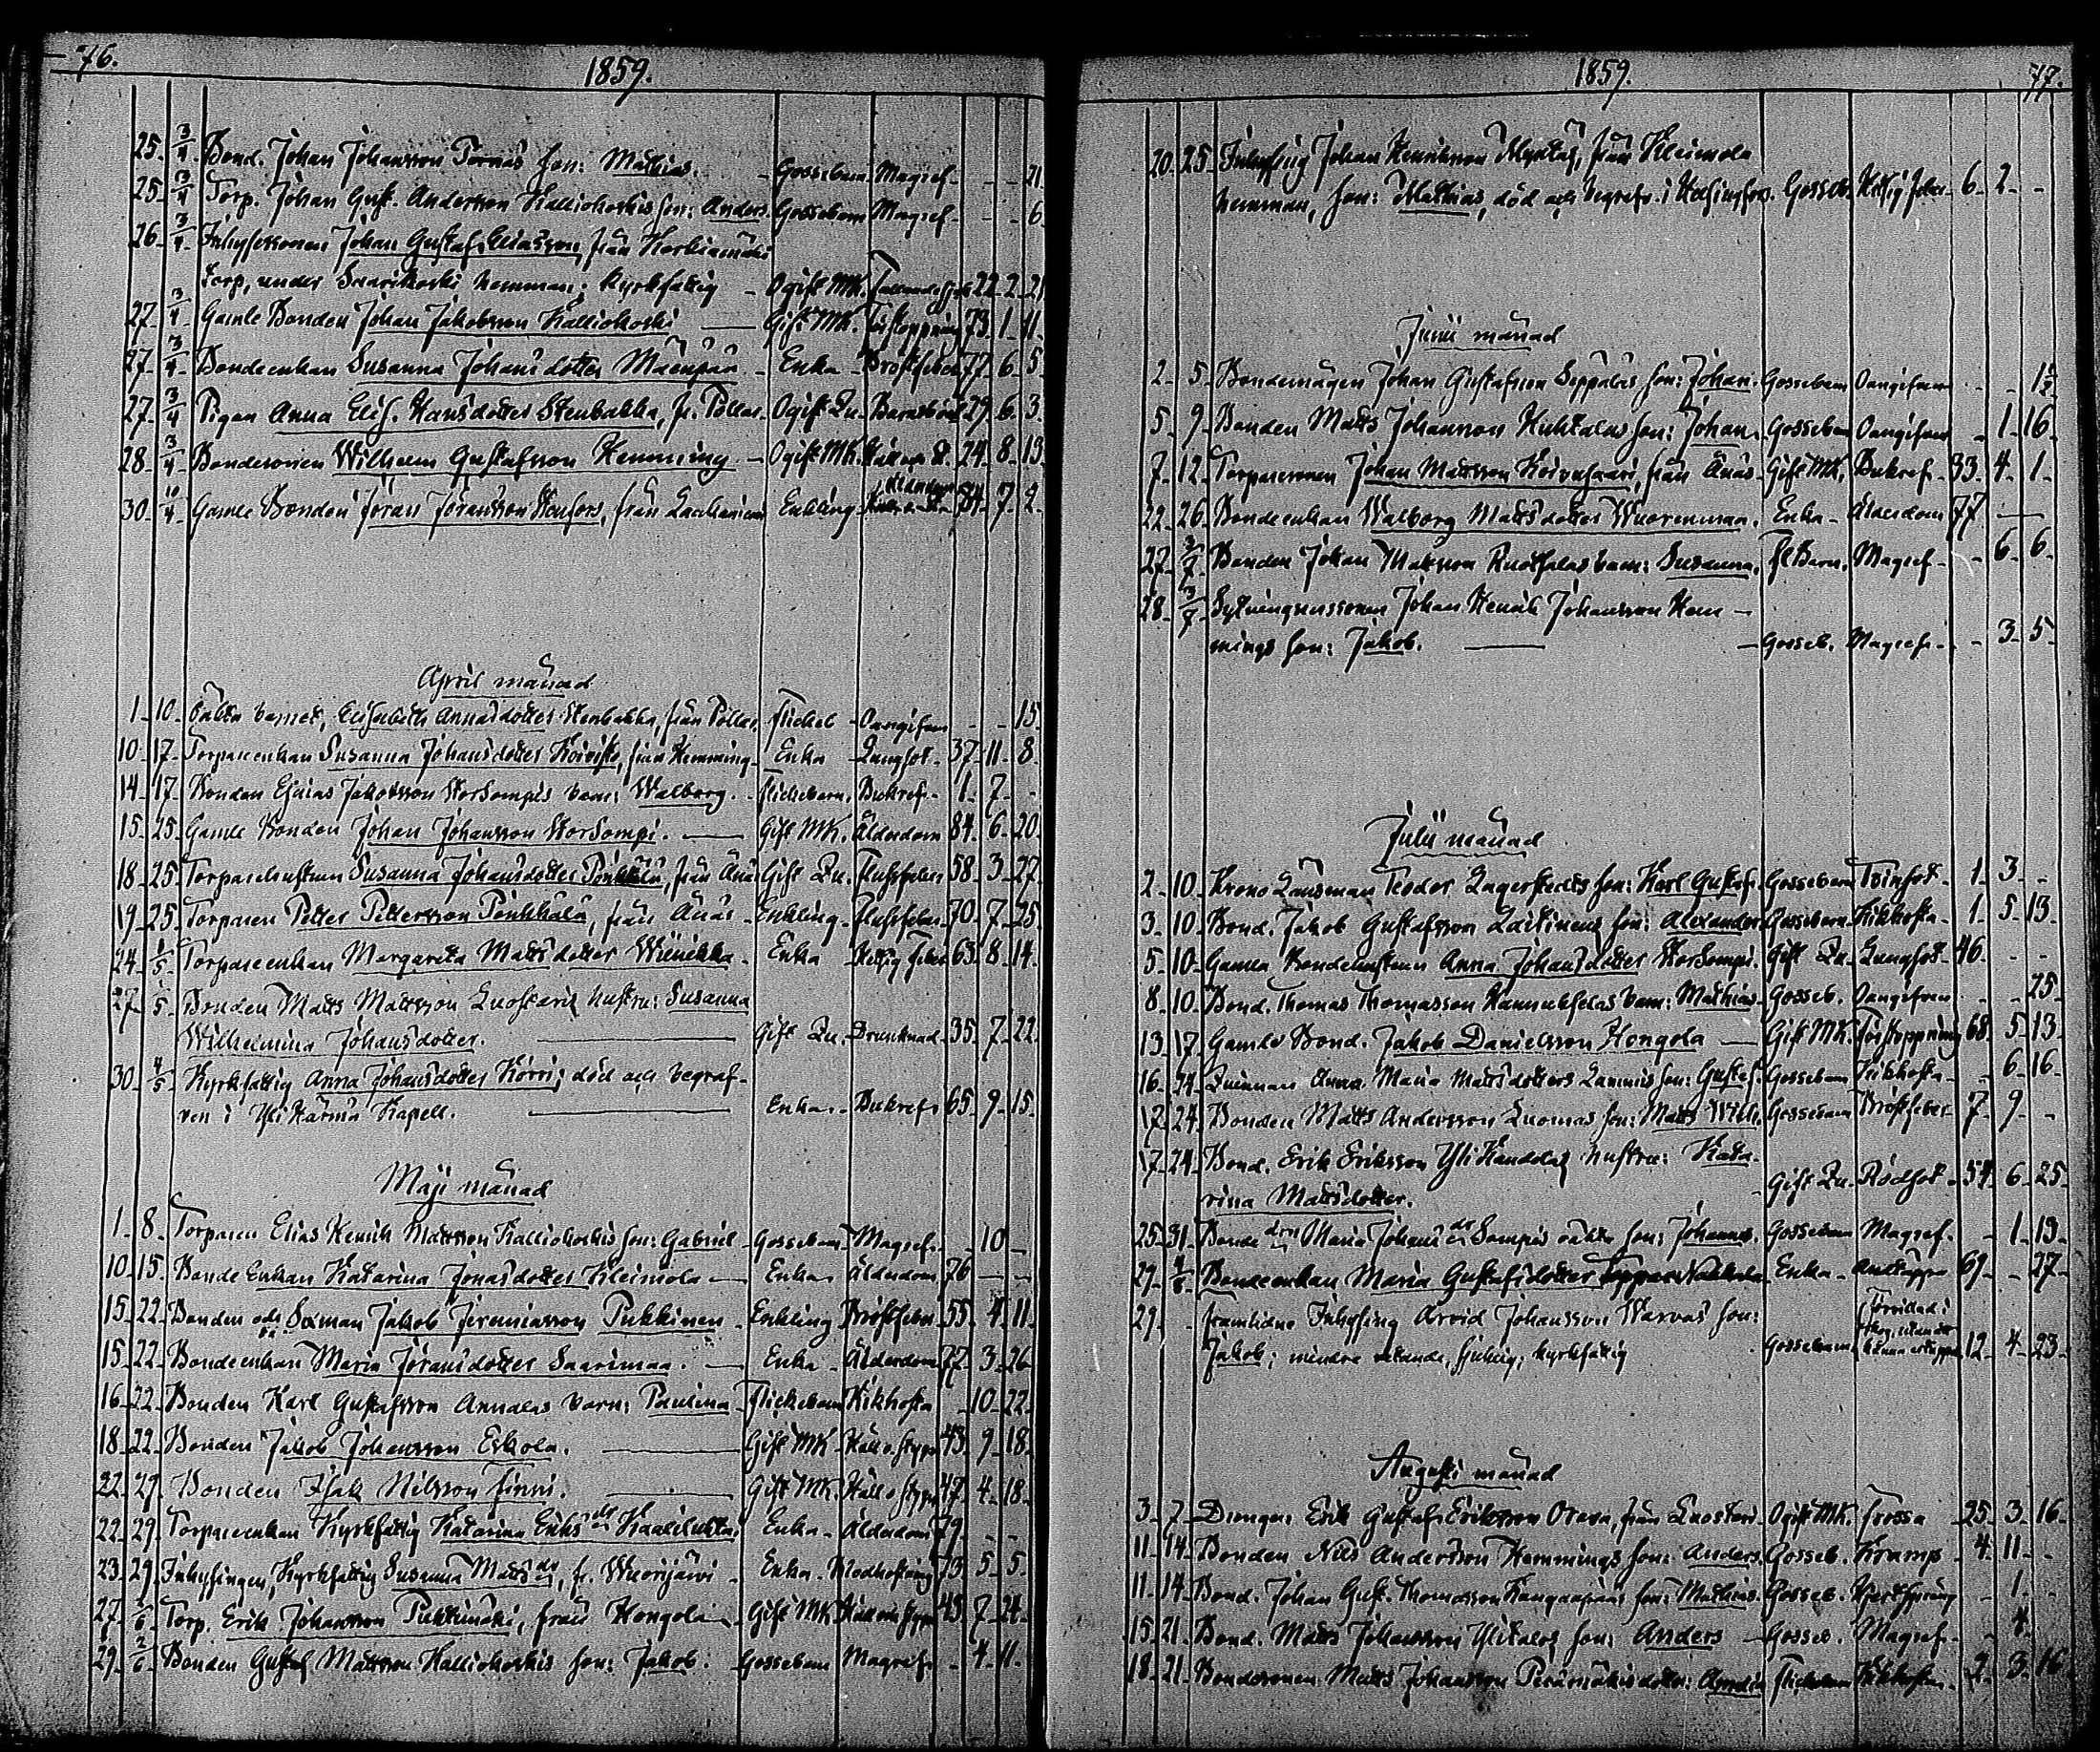 76.
1859.
25. 3/4 Bond. Johan Johansson Pernäs son: Mathias. Gossebarn Magref. - - 21.
25. 3/4 Torp. Johan Gust. Andersson Kalliokoskis son: Anders. Gossebarn Magref. - - 6.
26. 3/4 Inhysessonen Johan Gustaf Eliasson, från Korkiamäki
torp, under Saarikoski hemman; kyrkfattig - Ogift MK. 22. 2. 21.
27. 3/4 Gamle Bonden Johan Jakobsson Kalliokoski Gift MK. Förstoppning 73. 1. 11.
27. 3/4 Bondeenkan Susanna Johansdotter Mäenpää Enka Bröstfeber 77. 6. 5.
27. 3/4 Pigan Anna Elis. Hansdotter Stenbakka, fr. Pollar. Ogift Qu. Barnsbörd 29. 6. 3.
28. 3/4 Bondesonen Wilhelm Gustafsson Hemming Ogift MK. Håll och St. 24. 8. 13.
30. 10/4 Gamle Bonden Jöran Jöransson Stenfors, från Enkling 84. 7. 2.
April månad
1. 10. Oäkta barnet, Elisabeth Annasdotter Stenbakka, från Pollar. Flickeb. Oangifven - - 15.
10. 17. Torpareenkan Susanna Johansdotter Koivisto, från Hemming Enka Lungsot. 37. 11. 8.
14. 17. Bonden Esaias Jakobsson Storsompis barn: Walborg. Flickebarn. Bukref. 1. 7. -
15. 25. Gamle Bonden Johan Johansson Storsompi. Gift MK. Ålderdom 84. 6. 20.
18. 25. Torparehustrun Susanna Johansdotter Pönkkälä, från Änäs Gift Qu. Flussfeber 58. 3. 27.
19. 25. Torparen Petter Pettersson Pönkkälä, från Änäs Enkling Flussfeber 70. 7. 25.
24. 1/5 Torpareenkan Margareta Matts dotter Wiinikka Enka Hetsig feber 63. 8. 14.
27. 1/5 Bonden Matts Mattsson Luostaris hustru: Susanna
Wilhelmina Johansdotter. Gift Qu. Drunknad 35. 7. 22.
30. 4/5 Kyrkfattig Anna Johansdotter Körri; död och begraf-
ven i Yli Härmä Kapell. Enka. Bukref. 65. 9. 15.
Maji månad
1. 8. Torparen Elias Henrik Mattsson Kalliokoskis son: Gabriel Gossebarn Magref. - 10 -
10. 15. Bonde Enkan Katarina Jonasdotter Kleimola Enka Ålderdom 76 - -
15. 22. Bonden och Sexman Jakob Jeremiasson Pukkinen Enkling Bröstfeber 55. 4. 11.
15. 22. Bondeenkan Maria Jöransdotter Saarimaa. Enka Ålderdom 77. 3. 26.
16. 22. Bonden Karl Gustafsson Annalas barn: Paulina Flickebarn Kikhosta - 10. 22.
18. 22. Bonden Jakob Johansson Eskola. Gift MK. Håll o. styng 43. 9. 18.
22. 29. Bonden Isak Nilsson Finni. Gift MK. Håll o. styng 47. 4. 18.
22. 29. Torpareenkan Kyrkfattig Katarina Eriks dr Enka Ålderdom 79. - -
23. 29. Inhysingen, Kyrkfattig Susanna Matts dr, fr. Wuorijärvi Enka. 73. 5. 5.
27. 2/6 Torp. Erik Johansson Pukkimäki, från Hongola Gift MK. Håll och styng 45. 7. 24.
29. 2/6 Bonden Gustaf Mattsson Kalliokoskis son: Jakob. Gossebarn Magref. - 4. 11.
1859.
77.
20. 25. Inhysing Johan Henriksson Myntas, från Kleimola
hemman, son: Mathias, död och begrafv. i Helsingfors. Gosseb. Hetsig feber 6. 2. -
Junii månad
2. 5. Bondemågen Johan Gustafsson Seppäläs son: Johan. Gossebarn Oangifven - - 1/2
5. 9. Bonden Matts Johansson Huhtalas son: Johan. Gossebarn Oangifven - 1. 16.
7. 12. Torparesonen Johan Mattsson Koivusaari, från Änäs Gift MK. Bukref. 33. 4. 1.
22. 26. Bondeenkan Walborg Matts dotter Wuorenmaa. Enka Ålderdom 77 -
27. 3/7 Bonden Johan Mattsson Ruotsalas barn: Susanna. Fl Barn. Magref. - 6. 6.
28. 3/7 Sytningsmannen Johan Henrik Johansson Hem-
mings son: Jakob. Gosseb. Magref. - 3. 5.
Julii månad
2. 10. Krono Länsman Teodor Lagerstedts son: Karl Gustaf. Gossebarn Tvinsot 1. 3. -
3. 10. Bond. Jakob Gustafsson Laitinens son: Alexander Gossebarn Kikhosta 1. 5. 13.
5. 10. Gamla Bondehustrun Anna Johansdotter Storsompi. Gift Qu. Lungsot 46. - -
8. 10. Bond. Thomas Thomasson Hannukselas barn: Mathias Gosseb. Oangifven - - 25.
13. 17. Gamle Bond. Jakob Danielsson Hongola Gift MK. Förstoppning 68. 5. 13.
16. 24. Quinnan Anna Maria Mattsdotters Lammis son: Gustaf. Gossebarn Kikhosta - 6. 16.
17. 24. Bonden Matts Andersson Luomas son: Matts Wilh. Gossebarn Bröstfeber 7. 9. -
17. 24. Bond. Erik Eriksson Yli Handolas hustru: Kata-
rina Mattsdotter. Gift Qu. Rödsot 54. 6. 25.
25. 31. Bonde dren Maria Johans dr Sompis oäkta son: Johannes. Gossebarn Magref. - 1. 13.
29. Bondeenkan Maria Gustafsdotter Enka Andtäppa 69. - 27.
29. - framlidne Inhysing Arvid Johansson Warvas son:
Jakob; mindre vetande, sjuklig; kyrkfattig Gossebarn 12. 4. 23.
Augusti månad
3. 7. Drengen Erik Gustaf Eriksson Orava, från Luostari Ogift MK. Frossa 25. 3. 16.
11. 14. Bonden Nils Andersson Hemmings son: Anders. Gosseb. Kramp 4. 11. -
11. 14. Bond. Johan Gust. Thomasson Kangasniemis son: Mathias. Gosseb. - 1. -
15. 21. Bond. Matts Johansson Ylitalos son: Anders Gosseb. Magref. - 4. -
18. 21. Bondesonen Matts Johansson Perämäkis dotter: Flickebarn Kikhosta 2. 3. 16.